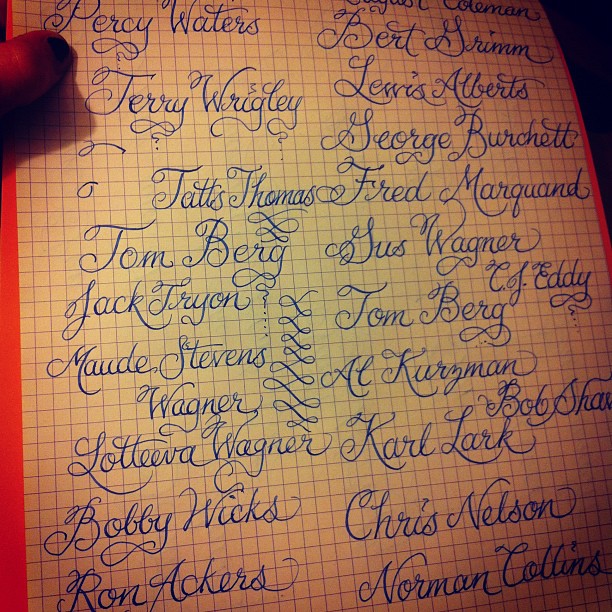 August Coleman
Percy Waters
Bert Grimm
Terry Wrigley
Lewis Alberts
George Burchett
Tatts Thomas
Fred Marquand
Tom Berg
Gus Wagner
C.J. Eddy
Jack Tryon
Tom Berg
Maude Stevens
Wagner
Al Kurzman
Bob Shaw
Lotteeva Wagner
Karl Lark
Bobby Wicks
Chris Nelson
Ron Ackers
Norman Collins